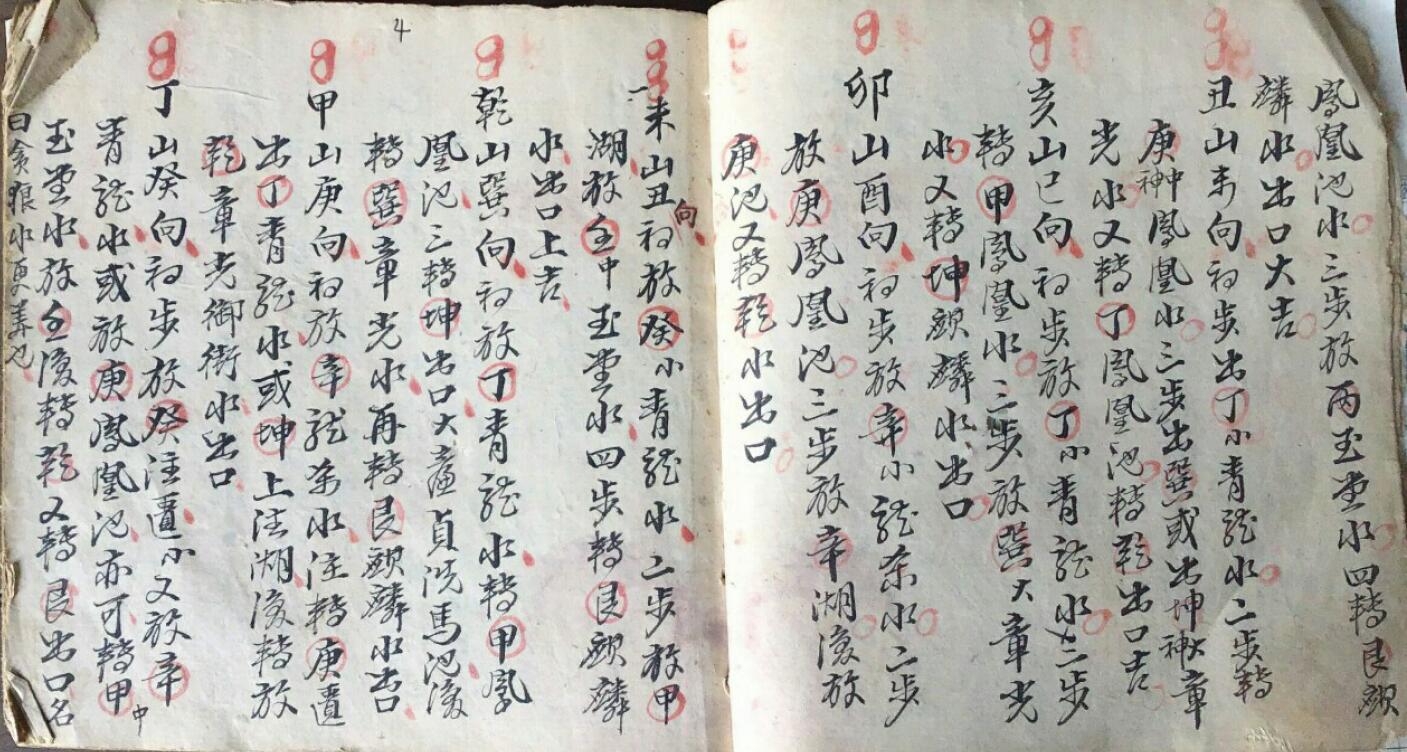 鳳凰池水三步放丙玉堂水四轉艮麒
麟水出口大吉
丑山未向初步出丁小青龍水二步轉
庚中神鳳凰水三步出巽或出坤神大章
光水又轉丁鳳凰池轉乾出口吉
亥山巳向初步放丁小青龍水二步
轉甲鳳凰水三步放巽大章光
水又轉坤麒麟水出口
卯山酉向初步放辛小龍水二步
放庚鳳凰池三步放辛湖後放
庚池又轉乾水出口
未山丑向初放癸小青龍水二步放甲
湖放壬中玉堂水四步轉艮麒麟
水出口上吉
乾山巽向初放丁青龍水轉甲鳳
凰池三轉坤出口大廉貞洗馬池後
轉巽章光水再轉艮麒麟水出口
甲山庚向初放辛龍水注轉庚
出丁青龍水或坤上注湖後轉放
乾章光御街水出口
丁山癸向初步放癸注小又放辛
青龍水或放庚鳳凰池亦可轉甲中
玉堂水放壬後轉乾又轉艮出口名
曰貪狼水更美也
4